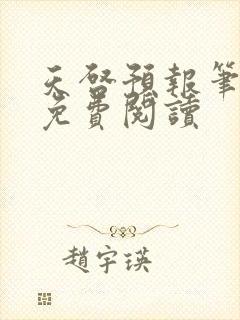 天啓預報筆
免費閱讀
趙宇瑛